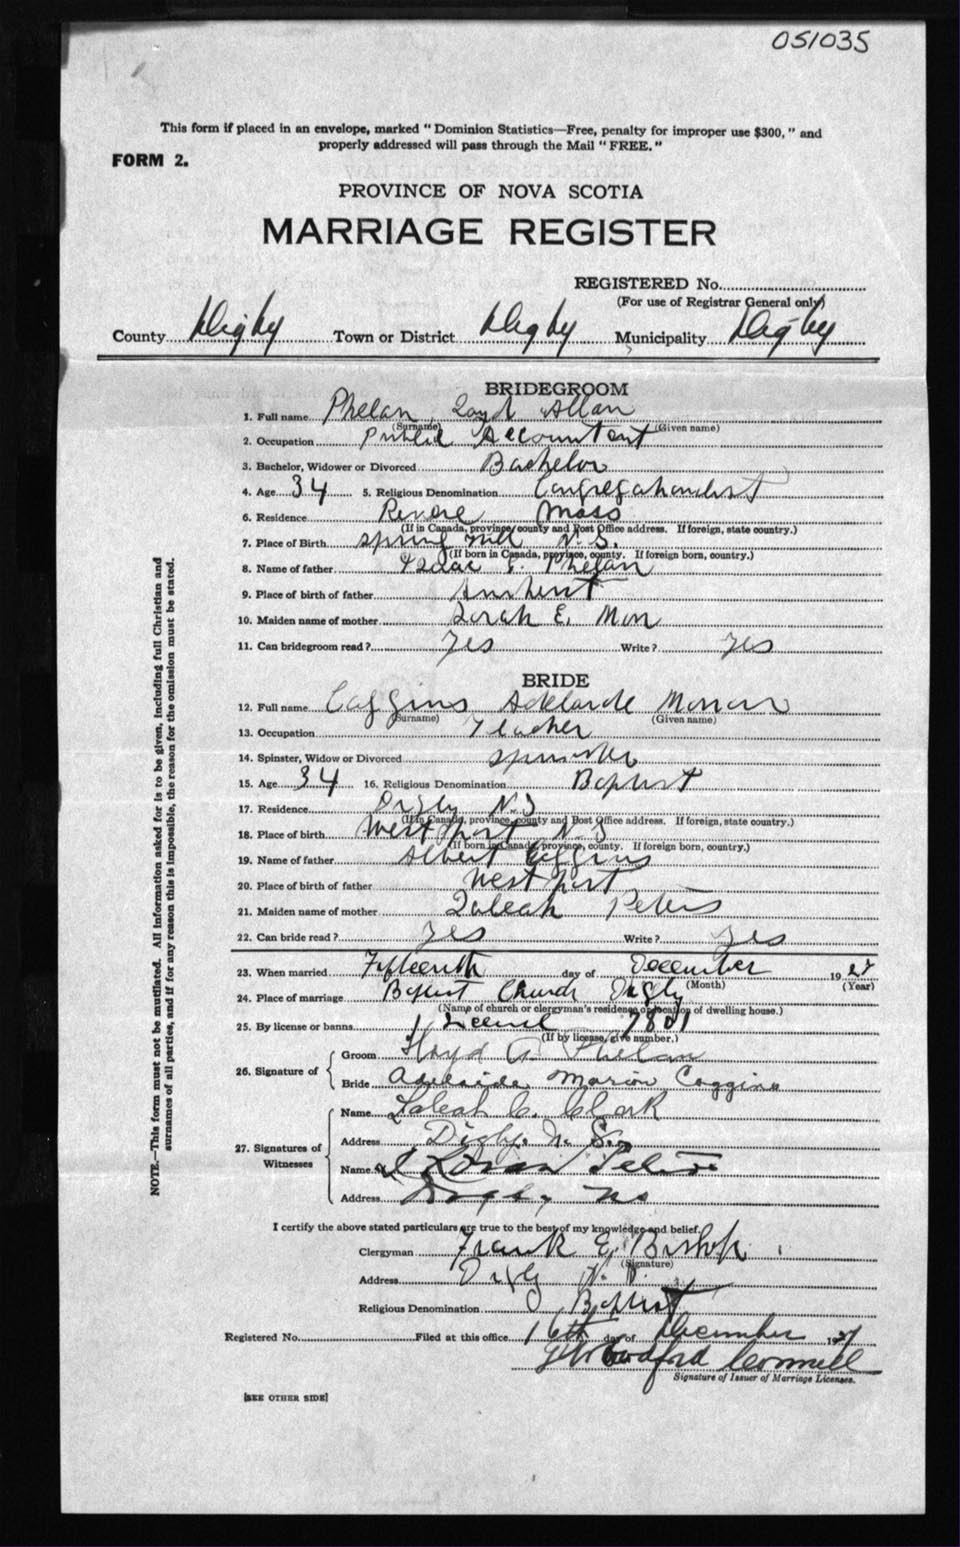 051035
This form if placed in an envelope, marked "Dominion Statistics—Free, penalty for improper use $300," and
properly addressed will pass through the Mail "FREE."
FORM 2.
PROVINCE OF NOVA SCOTIA
MARRIAGE REGISTER
REGISTERED No.
(For use of Registrar General only)
County Digby Town or District Digby Municipality Digby
BRIDEGROOM
1. Full name Phelan Allan
(Surname) (Given name)
2. Occupation Public Accountant
3. Bachelor, Widower or Divorced Bachelor
4. Age 34 5. Religious Denomination Congregationalist
6. Residence Revere Mass
(If in Canada, province, county and Post Office address. If foreign, state country.)
7. Place of Birth Spring Hill N.S.
(If born in Canada, province, county. If foreign born, country.)
8. Name of father Isaac Phelan
9. Place of birth of father Amherst
10. Maiden name of mother Sarah E.
11. Can bridegroom read? Yes Write? Yes
BRIDE
12. Full name Coggins Adelaide Marion
(Surname) (Given name)
13. Occupation Teacher
14. Spinster, Widow or Divorced Spinster
15. Age 34 16. Religious Denomination Baptist
17. Residence Digby N.S
(If in Canada, province, county and Post Office address. If foreign, state country.)
18. Place of birth Westport N.S
(If born in Canada, province, county. If foreign born, country.)
19. Name of father Albert Coggins
20. Place of birth of father Westport
21. Maiden name of mother Peters
22. Can bride read? Yes Write? Yes
23. When married Fifteenth day of December 1927
(Month) (Year)
24. Place of marriage Baptist Church Digby
(Name of church or clergyman's residence or location of dwelling house.)
25. By license or banns License 7801
(If by license, give number.)
26. Signature of
Groom Lloyd A Phelan
Bride Adelaide Marion Coggins
27. Signatures of Witnesses
Name C. Clark
Address Digby, N. S.
Name Peters
Address Digby NS
I certify the above stated particulars are true to the best of my knowledge and belief.
Clergyman Frank E. Bishop
(Signature)
Address Digby N.S.
Religious Denomination Baptist
Registered No. Filed at this office 16th day of December 1927
Connell
Signature of Issuer of Marriage Licenses.
[SEE OTHER SIDE]
NOTE.—This form must not be mutilated. All information asked for is to be given, including full Christian and
surnames of all parties, and if for any reason this is impossible, the reason for the omission must be stated.